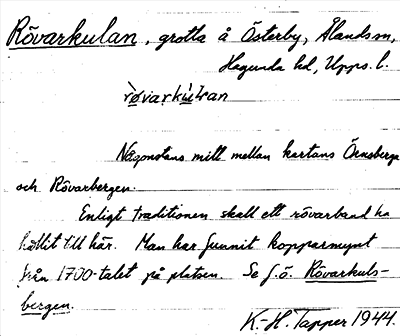 Rövarkulan, grotta å Österby, Ålands sn,
Hagunda hd, Upps. l.
rövarkulan
Någonstans mitt mellan kartans Örnsberga
och Rövarbergen.
Enligt traditionen skall ett rövarband ha
hållit till här. Man har funnit kopparmynt
från 1700-talet på platsen. Se f.ö. Rövarkuls-
bergen.
K.-H. Tapper 1944.